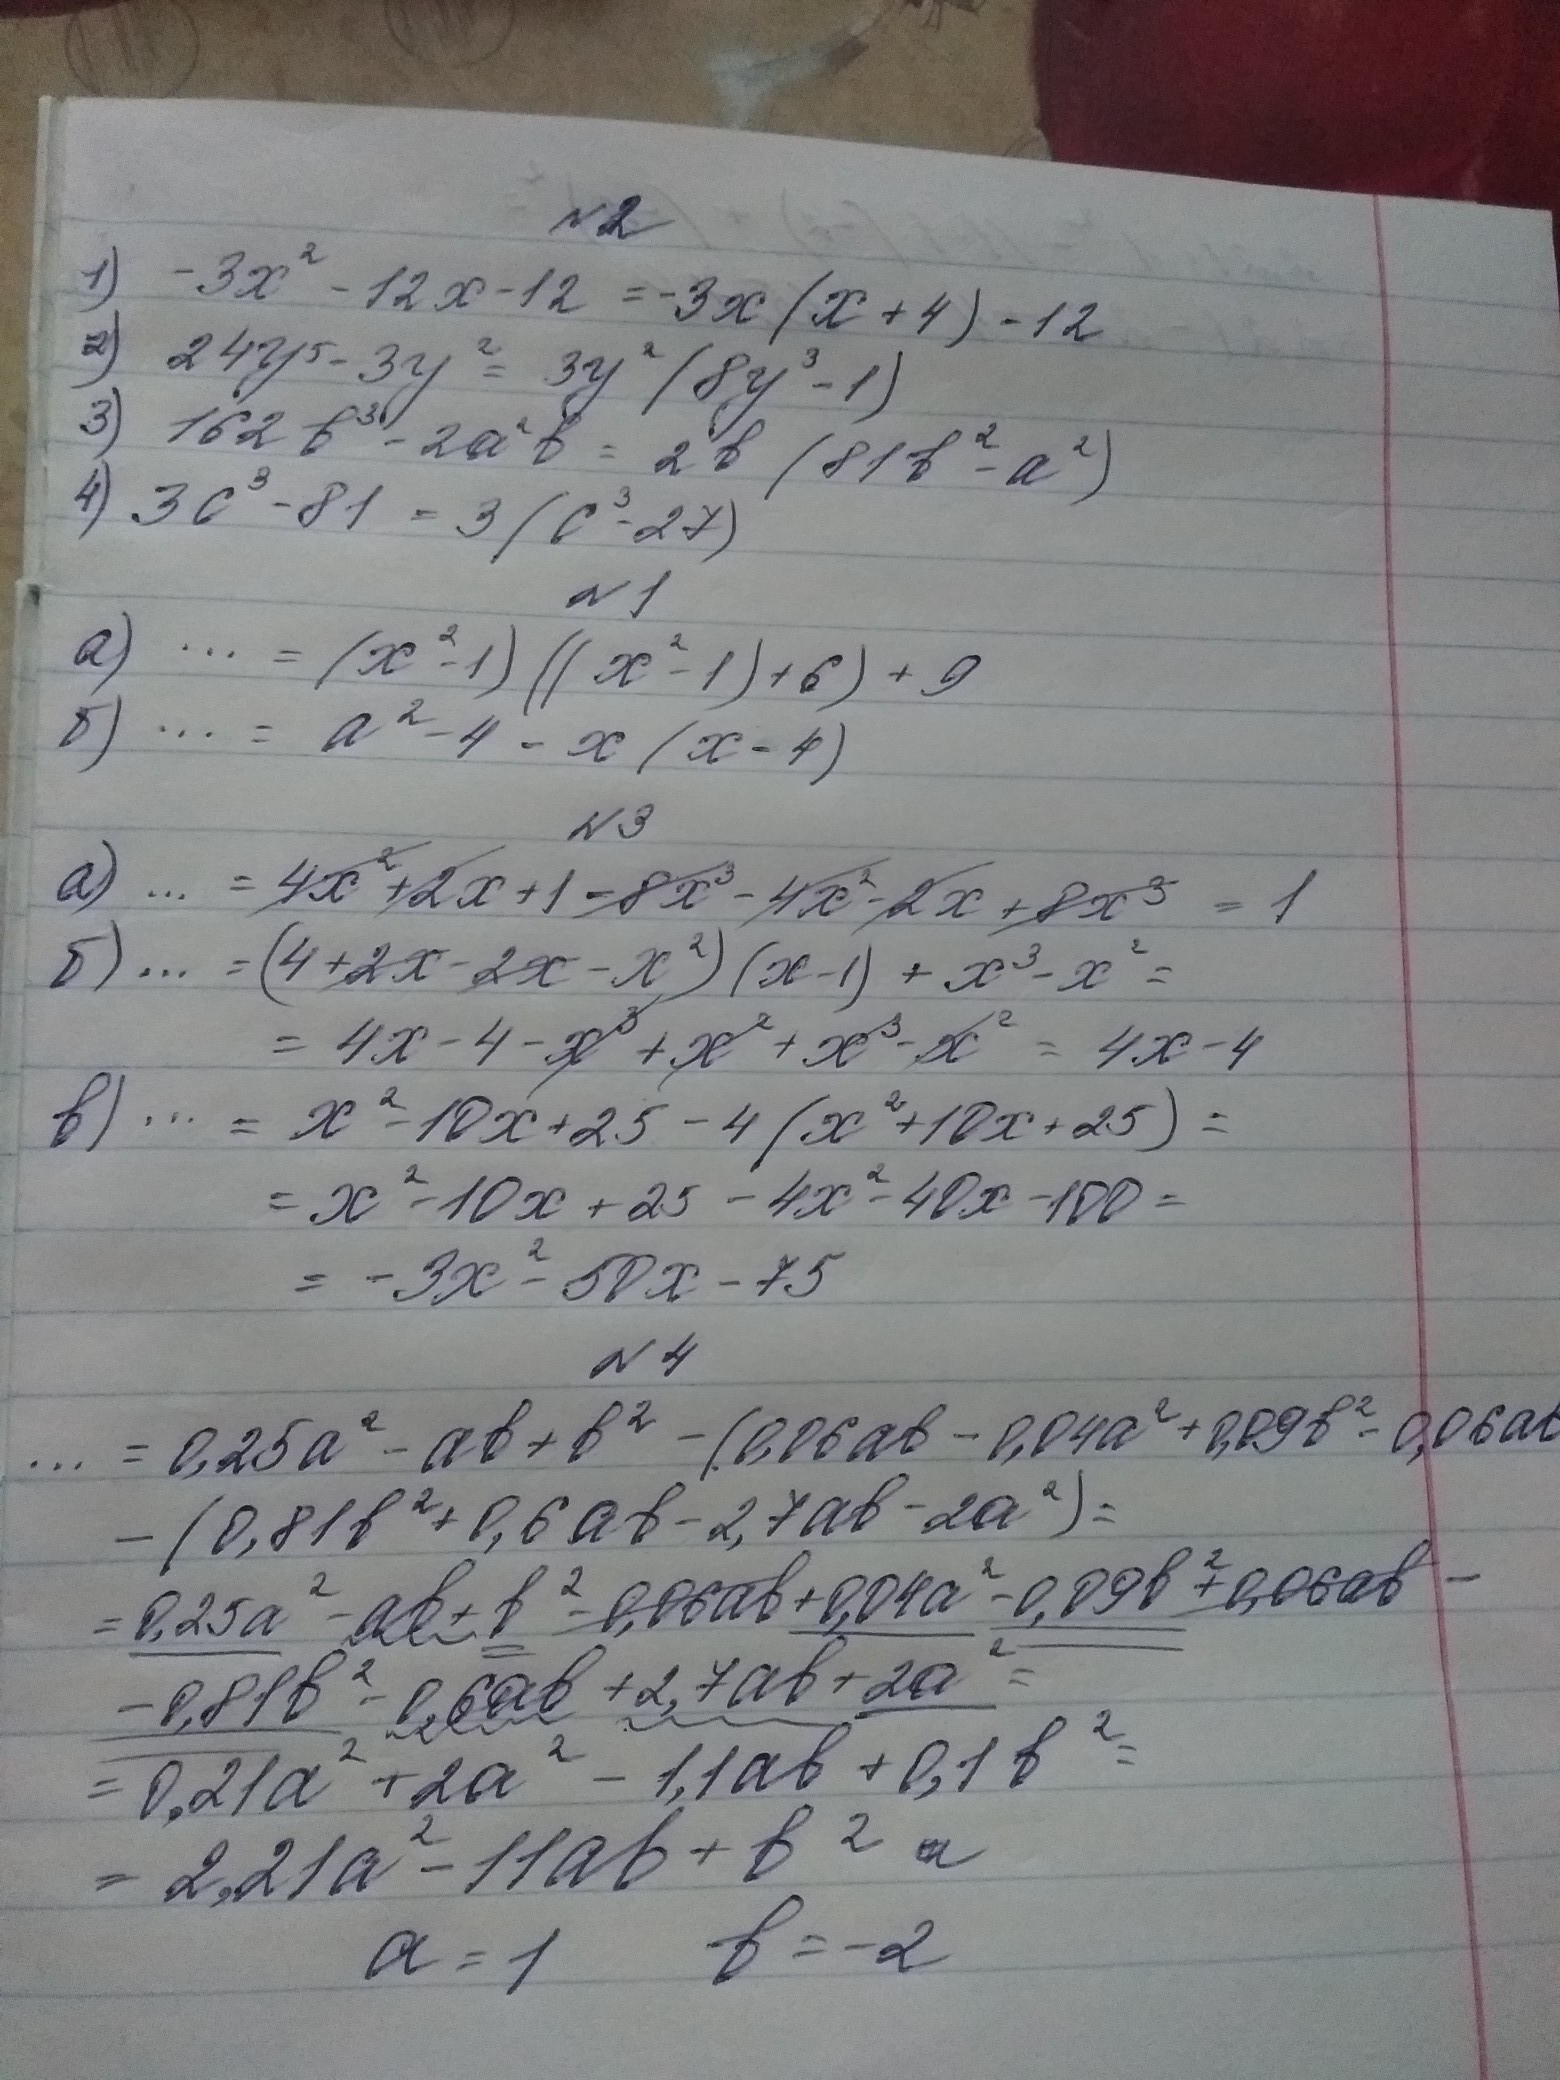 №2
1) -3x² - 12x - 12 = -3x(x + 4) - 12
2) 24y⁵ - 3y² = 3y²(8y³ - 1)
3) 162b³ - 2a²b = 2b(81b² - a²)
4) 3c³ - 81 = 3(c³ - 27)
№1
а) ... = (x² - 1)((x² - 1) + 6) + 9
б) ... = a² - 4 - x(x - 4)
№3
а) ... = 4x² + 2x + 1 - 8x³ - 4x² - 2x + 8x³ = 1
б) ... = (4 + 2x - 2x - x²)(x - 1) + x³ - x² =
= 4x - 4 - x³ + x² + x³ - x² = 4x - 4
в) ... = x² - 10x + 25 - 4(x² + 10x + 25) =
= x² - 10x + 25 - 4x² - 40x - 100 =
= -3x² - 50x - 75
№4
... = 0,25a² - ab + b² - (0,06ab - 0,04a² + 0,09b² - 0,06ab
- (0,81b² + 0,6ab - 2,7ab - 2a²) =
= 0,25a² - ab + b² - 0,06ab + 0,04a² - 0,09b² + 0,06ab -
- 0,81b² - 0,6ab + 2,7ab + 2a² =
= 0,21a² + 2a² - 1,1ab + 0,1b² =
= 2,21a² - 11ab + b²
a = 1 b = -2